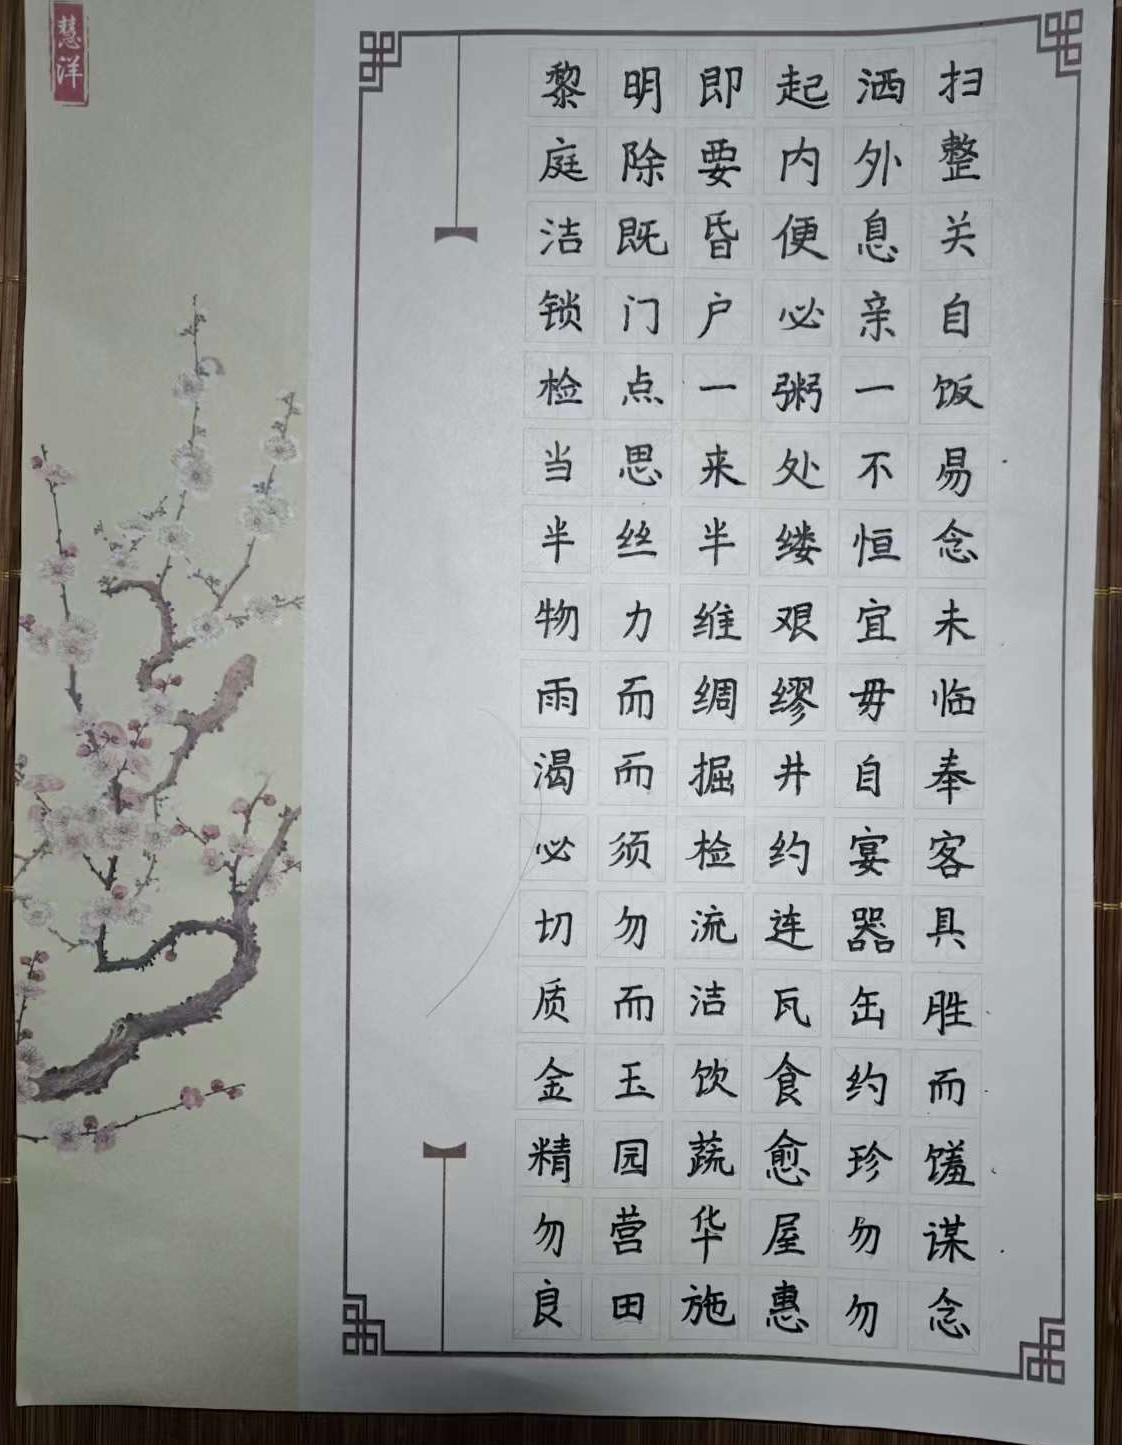 慧洋
黎明即起洒扫
庭除要内外整
洁既昏便息关
锁门户必亲自
检点一粥一饭
当思来处不易
半丝半缕恒念
物力维艰宜未
雨而绸缪毋临
渴而掘井自奉
必须检约宴客
切勿流连器具
质而洁瓦缶胜
金玉饮食约而
精园蔬愈珍馐
勿营华屋勿谋
良田施惠勿念